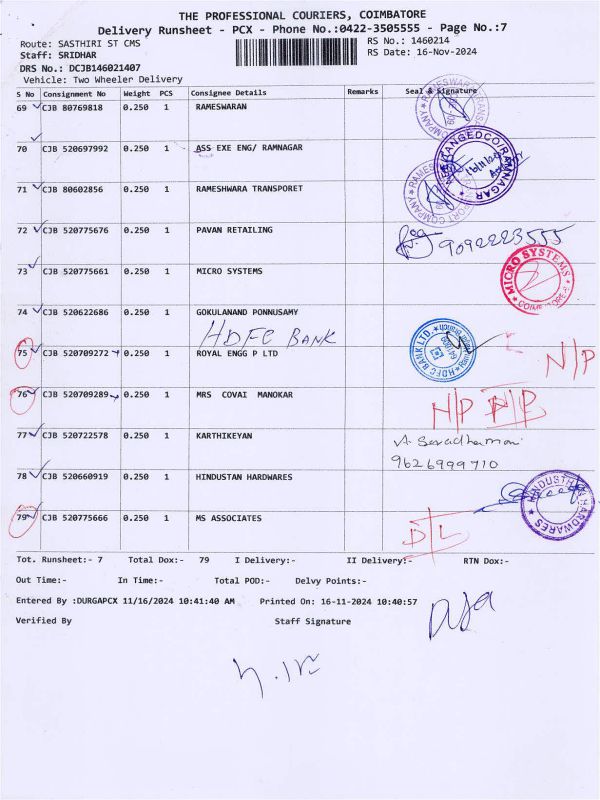 THE PROFESSIONAL COURIERS, COIMBATORE
Delivery Runsheet - PCX - Phone No.:0422-3505555 - Page No.:7
Route: SASTHIRI ST CMS
RS No.: 1460214
Staff: SRIDHAR
RS Date: 16-Nov-2024
DRS No.: DCJB146021407
Vehicle: Two Wheeler Delivery
S No Consignment No Weight PCS Consignee Details Remarks Seal & Signature
69 CJB 80769818 0.250 1 RAMESWARAN
70 CJB 520697992 0.250 1 ASS EXE ENG/ RAMNAGAR
71 CJB 80602856 0.250 1 RAMESHWARA TRANSPORET
72 CJB 520775676 0.250 1 PAVAN RETAILING 9092223555
73 CJB 520775661 0.250 1 MICRO SYSTEMS
MICRO SYSTEMS
74 CJB 520622686 0.250 1 GOKULANAND PONNUSAMY
HDFC BANK
HDFC BANK LTD.
75 CJB 520709272 0.250 1 ROYAL ENGG P LTD N/P
76 CJB 520709289 0.250 1 MRS COVAI MANOKAR N/P N/P
77 CJB 520722578 0.250 1 KARTHIKEYAN
9626999710
78 CJB 520660919 0.250 1 HINDUSTAN HARDWARES
HINDUSTHAN HARDWARES
79 CJB 520775666 0.250 1 MS ASSOCIATES D/L
Tot. Runsheet:- 7 Total Dox:- 79 I Delivery:- II Delivery:- RTN Dox:-
Out Time:- In Time:- Total POD:- Delvy Points:-
Entered By :DURGAPCX 11/16/2024 10:41:40 AM Printed On: 16-11-2024 10:40:57
Verified By Staff Signature